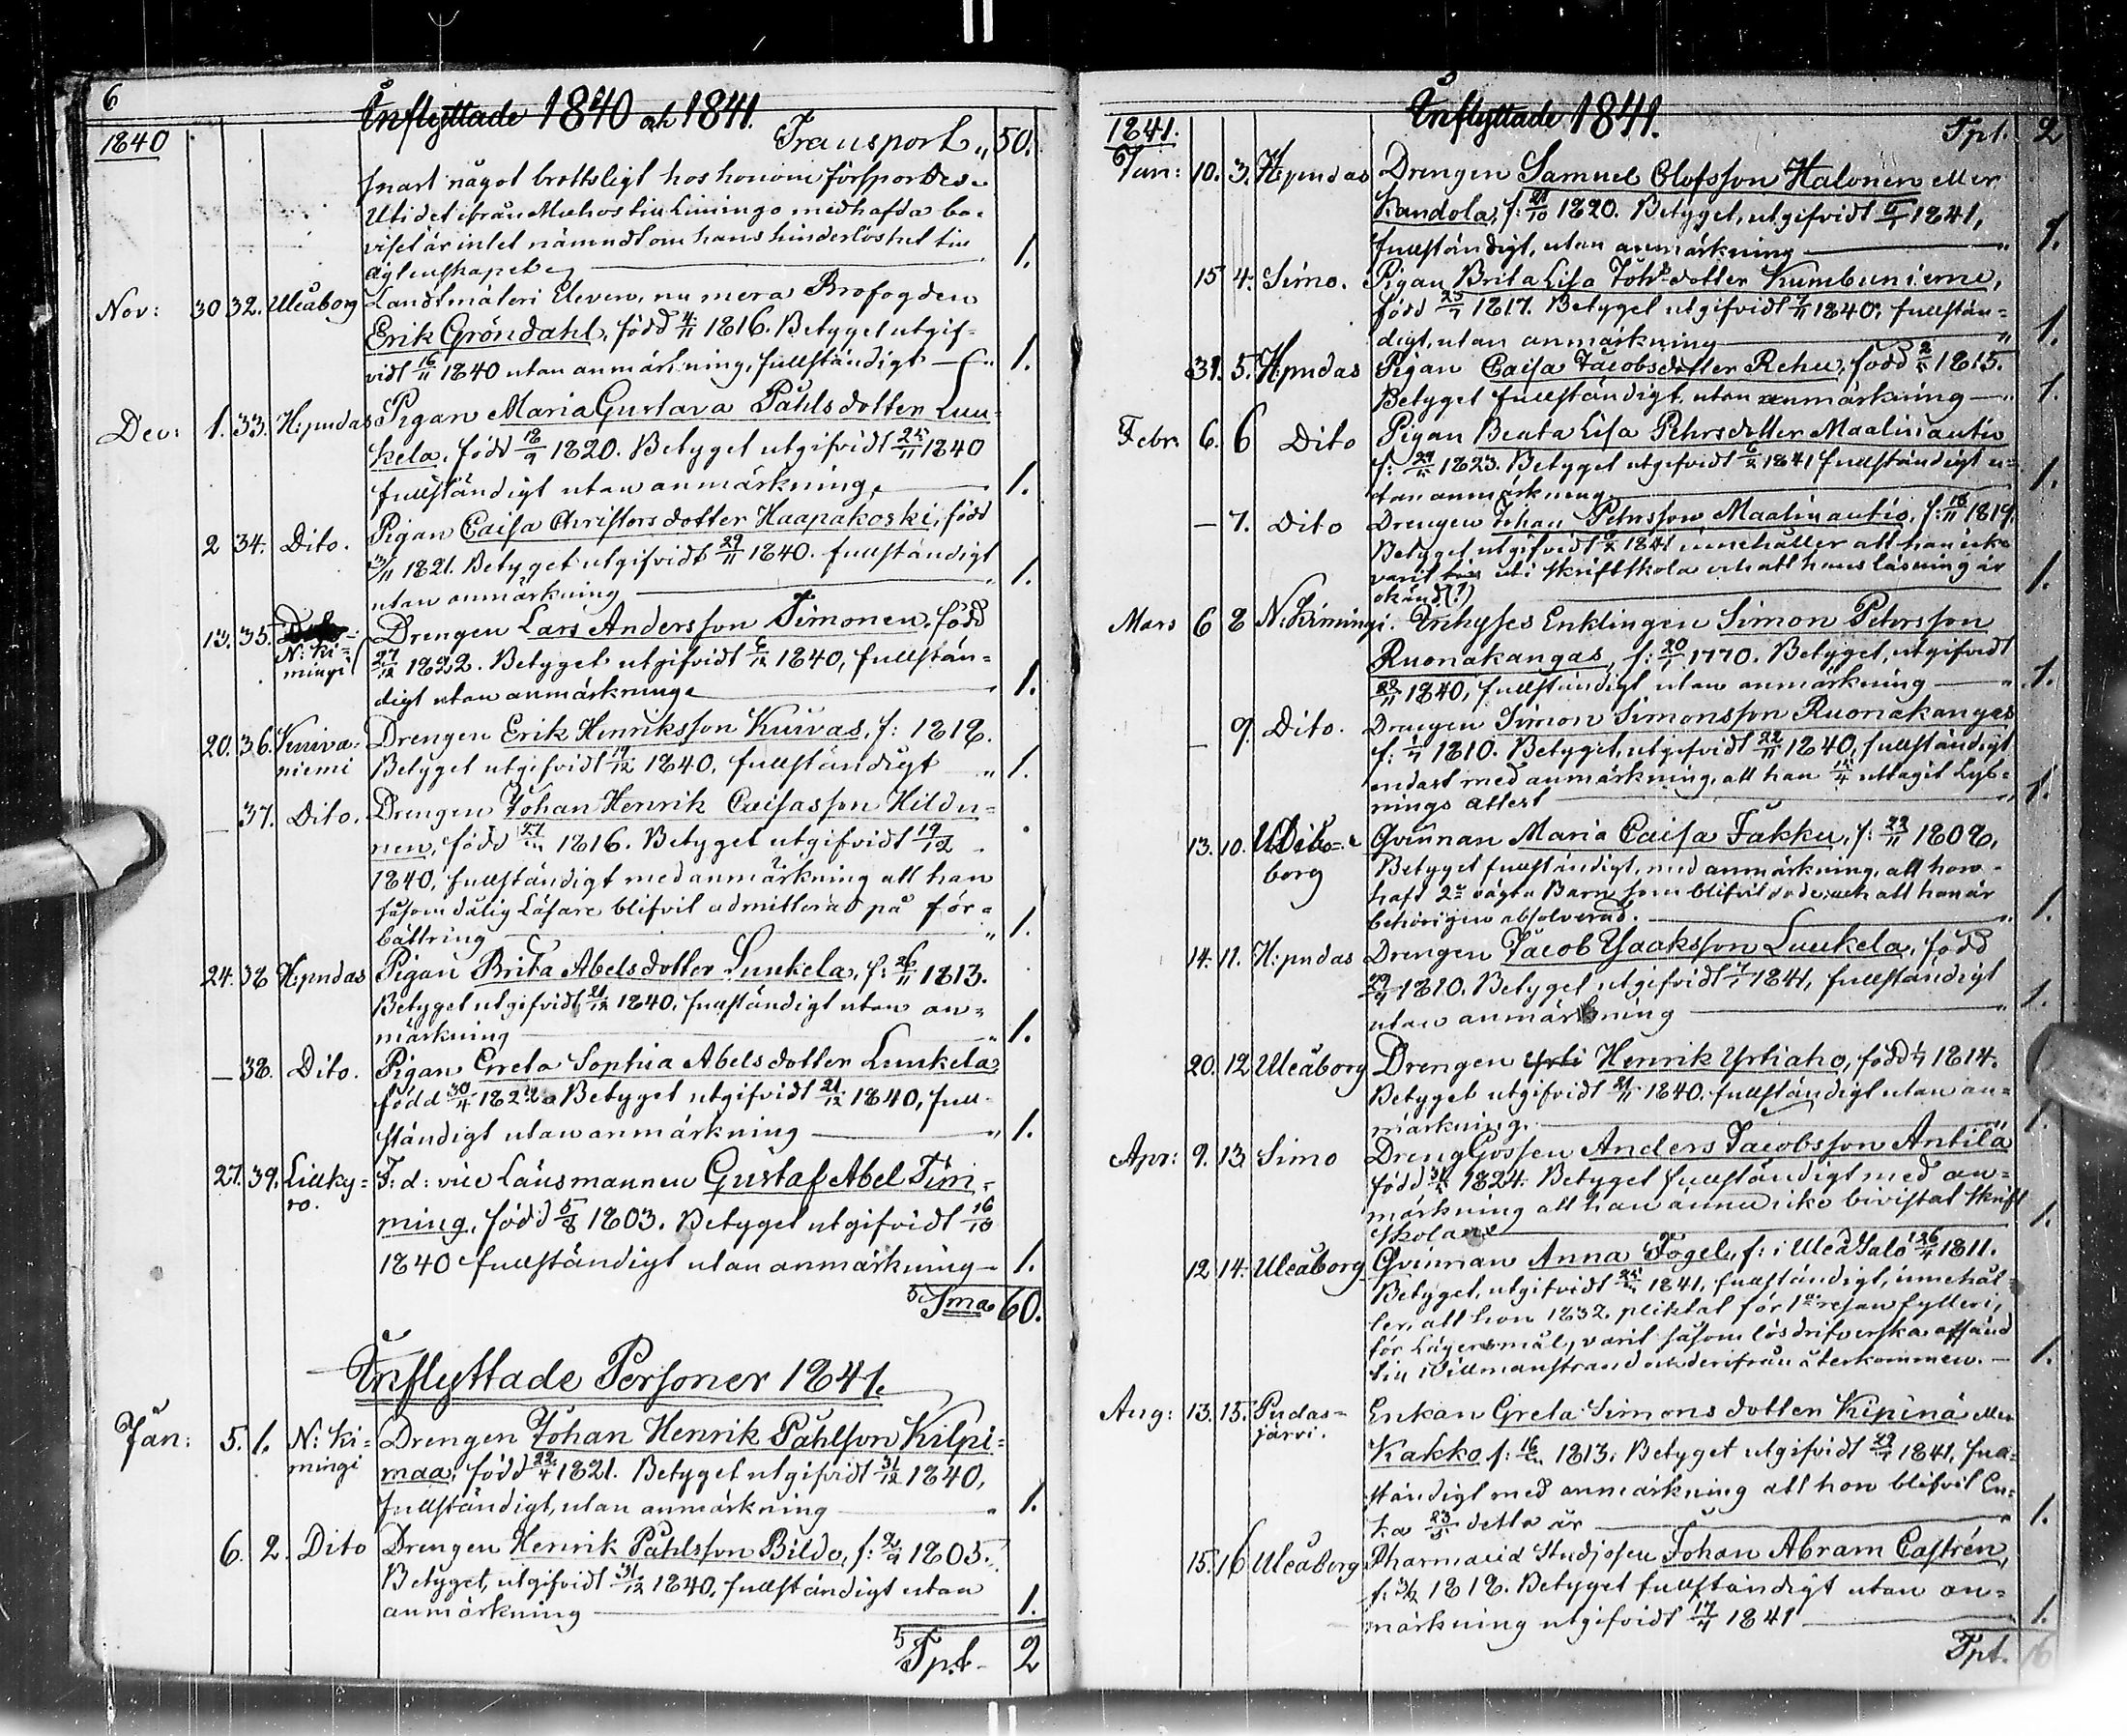 6
Inflyttade 1840 och 1841.
1840 Transport „ 50.
snart något brottsligt hos honom försportes.
Uti det ifrån Muhos till Limingo medhafda be-
viset är intet nämndt om hans hinderlöshet till
ägtenskapet 1.
Nov: 30 32. Uleåborg Landtmäteri Eleven, nu mera Brofogden
Erik Gröndahl, född 4/11 1816. Betyget utgif-
vidt 16/11 1840 utan anmärkning, fullständigt 1.
Dec: 1. 33. H:pudas Pigan Maria Gustava Påhlsdotter Luu-
kela, född 12/9 1820. Betyget utgifvidt 25/11 1840
fullständigt utan anmärkning. 1.
2 34. Dito. Pigan Caisa Christersdotter Haapakoski, född
3/11 1821. Betyget utgifvidt 29/11 1840. fullständigt
utan anmärkning 1.
13. 35. N: Ki=
mingi Drengen Lars Andersson Timonen, född
27/12 1822. Betyget utgifvidt 6/12 1840, fullstän=
digt utan anmärkning 1.
20. 36. Kuiva=
niemi Drengen Erik Henriksson Kuivas, f: 1818.
Betyget utgifvidt 19/12 1840, fullständigt „ 1.
— 37. Dito. Drengen Johan Henrik Caisasson Hildu=
nen, född 1816. Betyget utgifvidt 19/12
1840, fullständigt med anmärkning att han
såsom dålig Läsare blifvit admitterad på för=
bättring „ 1.
24. 38 H:pudas Pigan Brita Abelsdotter Luukela, f: 26/11 1813.
Betyget utgifvidt 21/12 1840, fullständigt utan an=
märkning „ 1.
— 38. Dito. Pigan Greta Sophia Abelsdotter Luukela
född 30/4 1822. Betyget utgifvidt 21/12 1840, full-
ständigt utan anmärkning „ 1.
27. 39. Lillky=
ro. F: d: vice Länsmannen Gustaf Abel Tim=
ming, född 5/8 1803. Betyget utgifvidt 16/10
1840 fullständigt utan anmärkning 1.
Sma 60.
Inflyttade Personer 1841.
Jan: 5. 1. N: Ki=
mingi Drengen Johan Henrik Påhlson Kilpi=
maa, född 22/4 1821. Betyget utgifvidt 31/12 1840,
fullständigt, utan anmärkning „ 1.
6. 2. Dito Drengen Henrik Påhlsson Bildo, f: 2/9 1805.
Betyget, utgifvidt 31/12 1840, fullständigt utan
anmärkning 1.
Tpt. 2
Inflyttade 1841.
1841. Tpt. 2
Jan: 10. 3. H:pudas Drengen Samuel Olofsson Halonen eller
Kandola, f: 21/10 1820. Betyget, utgifvidt 5/1 1841,
fullständigt, utan anmärkning „ 1.
15 4. Simo. Pigan Brita Lisa Johsdotter Kumbuniemi,
född 25/7 1817. Betyget utgifvidt 7/11 1840, fullstän=
digt, utan anmärkning „ 1.
31. 5. H:pudas Pigan Caisa Jacobsdotter Rehu, född 1815.
Betyget fullständigt utan anmärkning „ 1.
Febr: 6. 6 Dito Pigan Beata Lisa Pehrsdotter Maalinautio
f: 1823. Betyget utgifvidt 6/2 1841 fullständigt u=
tan anmärkning 1.
— 7. Dito Drengen Johan Pehrsson Maalinautio, f: 18/11 1819.
Betyget utgifvidt 6/2 1841 innehåller att han icke
varit uti skriftskola och att hans läsning är
okänd (!) 1.
Mars 6 8 N. Kimingi. Inhyses Enklingen Simon Petersson
Ruonakangas, f: 20/1 1770. Betyget, utgifvidt
22/11 1840, fullständigt utan anmärkning „ 1.
— 9. Dito. Drengen Simon Simonsson Ruonakangas
f: 1810. Betyget, utgifvidt 22/11 1840, fullständigt
endast med anmärkning, att han uttagit Lys=
nings attest „ 1.
13. 10. Uleå=
borg Qvinnan Maria Caisa Jakku, f: 23/11 1808,
Betyget fullständigt, med anmärkning, att hon
haft 2ne oägta Barn som blifvit döde, och att hon är
behörigen absolverad. „ 1.
14. 11. H:pudas Drengen Jacob Isaaksson Luukela, född
1810. Betyget utgifvidt 1841, fullständigt
utan anmärkning „ 1.
20. 12 Uleåborg Drengen Yrti Henrik Yrtiaho, född 1814.
Betyget utgifvidt 21/11 1840. fullständigt utan an=
märkning. „ 1.
Apr: 9. 13. Simo DrengGossen Anders Jacobsson Antila
född 1824. Betyget fullständigt med an=
märkning att han ännu icke bivistat Skrift
skolan 1.
12 14. Uleåborg Qvinnan Anna Fogel, f: i Uleå Salo 26/4 1811.
Betyget, utgifvidt 1841, fullständigt, innehål=
ler, att hon 1832. pliktat för 1a resan fylleri,
för Lägersmål, varit såsom lösdrifverska afsänd
till Willmanstrand och derifrån återkommen. 1.
Aug: 13. 15. Pudas=
järvi. Enkan Greta Simonsdotter Kipinä eller
Kakko f: 1813. Betyget utgifvidt 29/7 1841, full=
ständigt med anmärkning att hon blifvit En=
ka 23/5 detta år „ 1.
15. 16 Uleåborg Pharmacie Studiosen Johan Abram Castrén,
f: 1818. Betyget fullständigt utan an=
märkning utgifvidt 17/4 1841 1.
Tpt. 16